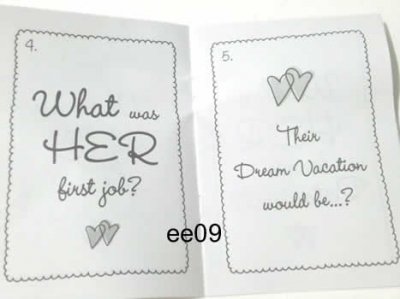 4.
What was
HER
first job?
5.
Their
Dream Vacation
would be...?
ee09